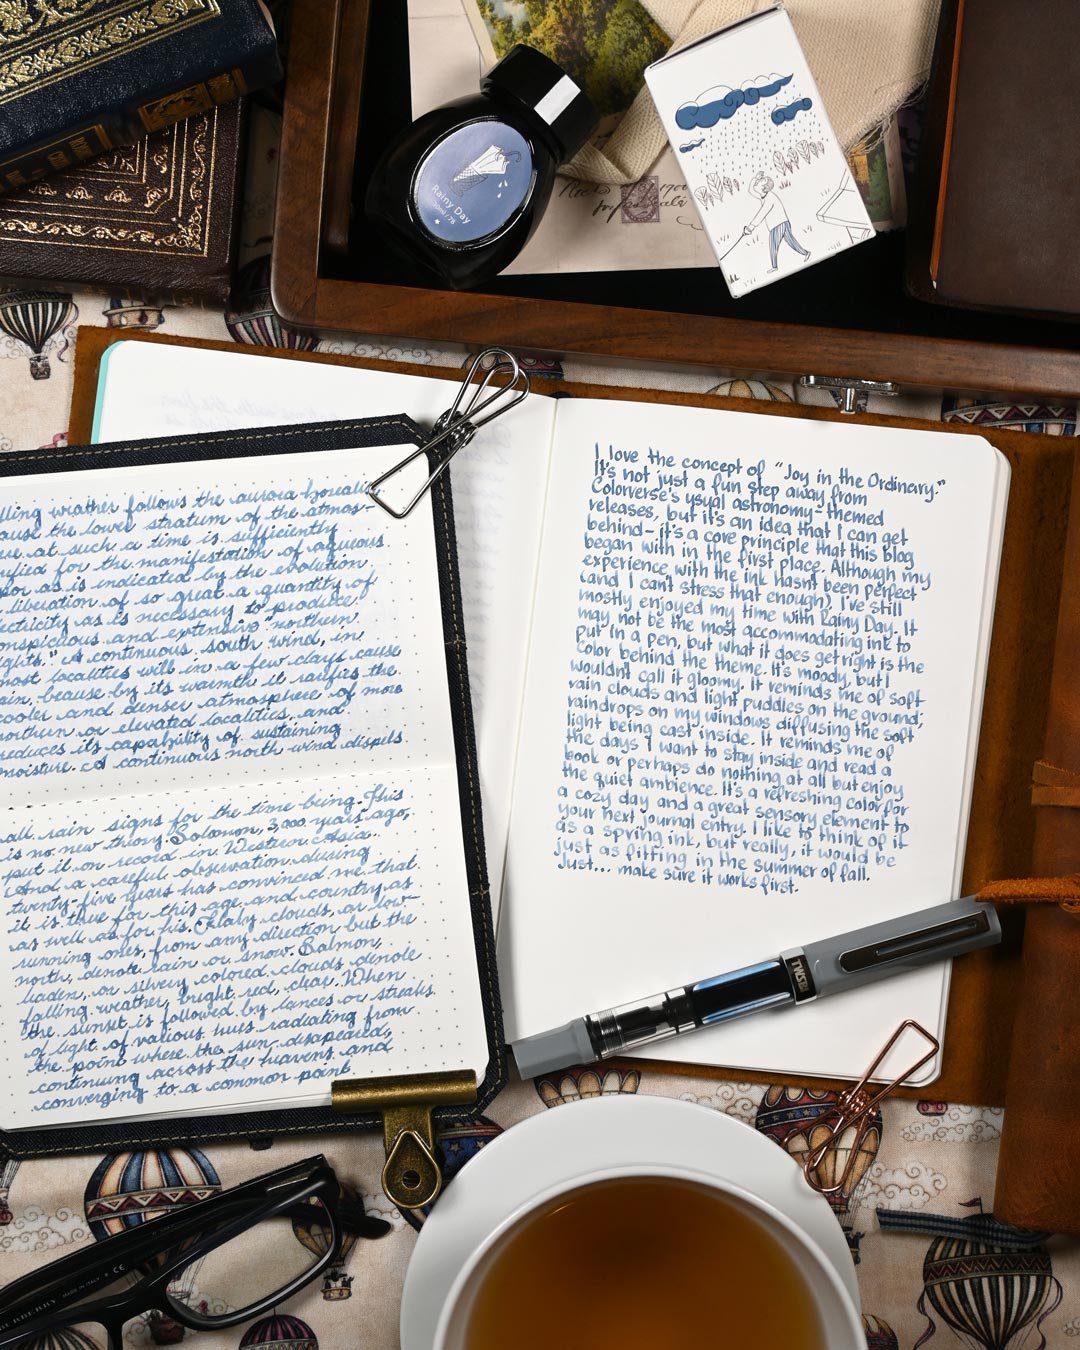 Rainy Day
falling weather follows the aurora borealis,
the lower stratum of the atmos-
at such a time is sufficiently
for the manifestation of aqueous
as is indicated by the evolution
liberation of so great a quantity of
as is necessary to produce
conspicuous and extensive "northern
lights." A continuous south wind, in
most localities will in a few days cause
rain, because by its warmth it rarifies the
cooler and denser atmosphere of more
northern or elevated localities, and
reduces its capability of sustaining
moisture. A continuous north wind dispels
all rain signs for the time being. This
is no new thing. Solomon, 3,000 years ago,
put it on record in Western Asia.
And a careful observation during
twenty-five years has convinced me that
it is true for this age and country as
as well as for his. Flaky clouds, or low-
running ones, from any direction but the
north, denote rain or snow. Salmon,
leaden, or silvery colored clouds denote
falling weather, bright red, clear. When
the sunset is followed by lances or streaks
of light of various hues radiating from
the point where the sun disappeared,
continuing across the heavens and
converging to a common point
I love the concept of "Joy in the Ordinary."
It's not just a fun step away from
Colorverse's usual astronomy-themed
releases, but it's an idea that I can get
behind- it's a core principle that this blog
began with in the first place. Although my
experience with the ink hasn't been perfect
(and I can't stress that enough), I've still
mostly enjoyed my time with Rainy Day. It
may not be the most accommodating ink to
put in a pen, but what it does get right is the
color behind the theme. It's moody, but I
wouldn't call it gloomy. It reminds me of soft
rain clouds and light puddles on the ground;
raindrops on my windows diffusing the soft
light being cast inside. It reminds me of
the days I want to stay inside and read a
book or perhaps do nothing at all but enjoy
the quiet ambience. It's a refreshing color for
a cozy day and a great sensory element to
your next journal entry. I like to think of it
as a spring ink, but really, it would be
just as fitting in the summer or fall.
Just... make sure it works first.
TWSBI
BURBERRY MADE IN ITALY CE